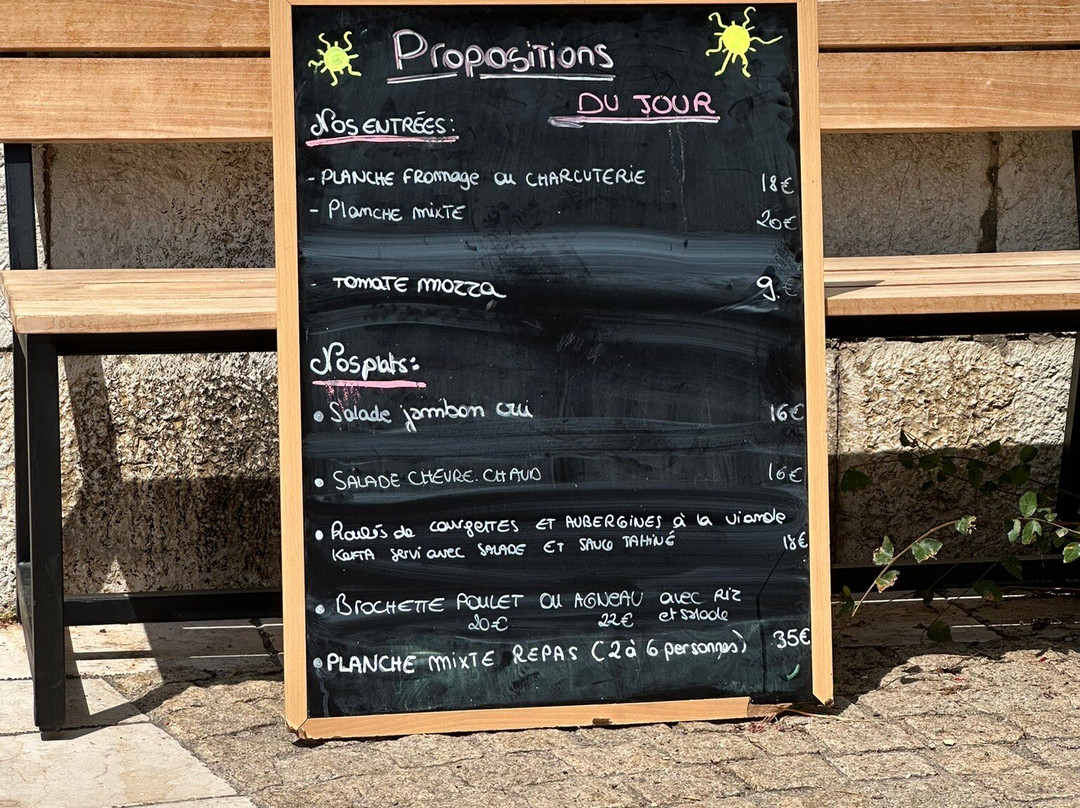 Propositions
DU JOUR
Nos ENTRÉES:
- PLANCHE FROMMAGE OU CHARCUTERIE 18€
- Planche mixte 20€
- TOMATE MOZZA 9.€
Nos plats:
• Salade jambon cru 16€
• SALADE CHÈVRE.CHAUD 16€
• Roulés de courgettes ET AUBERGINES à la viande
KEFTA servi avec SALADE ET SAUCE TAHINÉ 18€
• BROCHETTE POULET OU AGNEAU avec RIZ
20€ 22€ et salade
• PLANCHE MIXTE REPAS (2 à 6 personnes) 35€